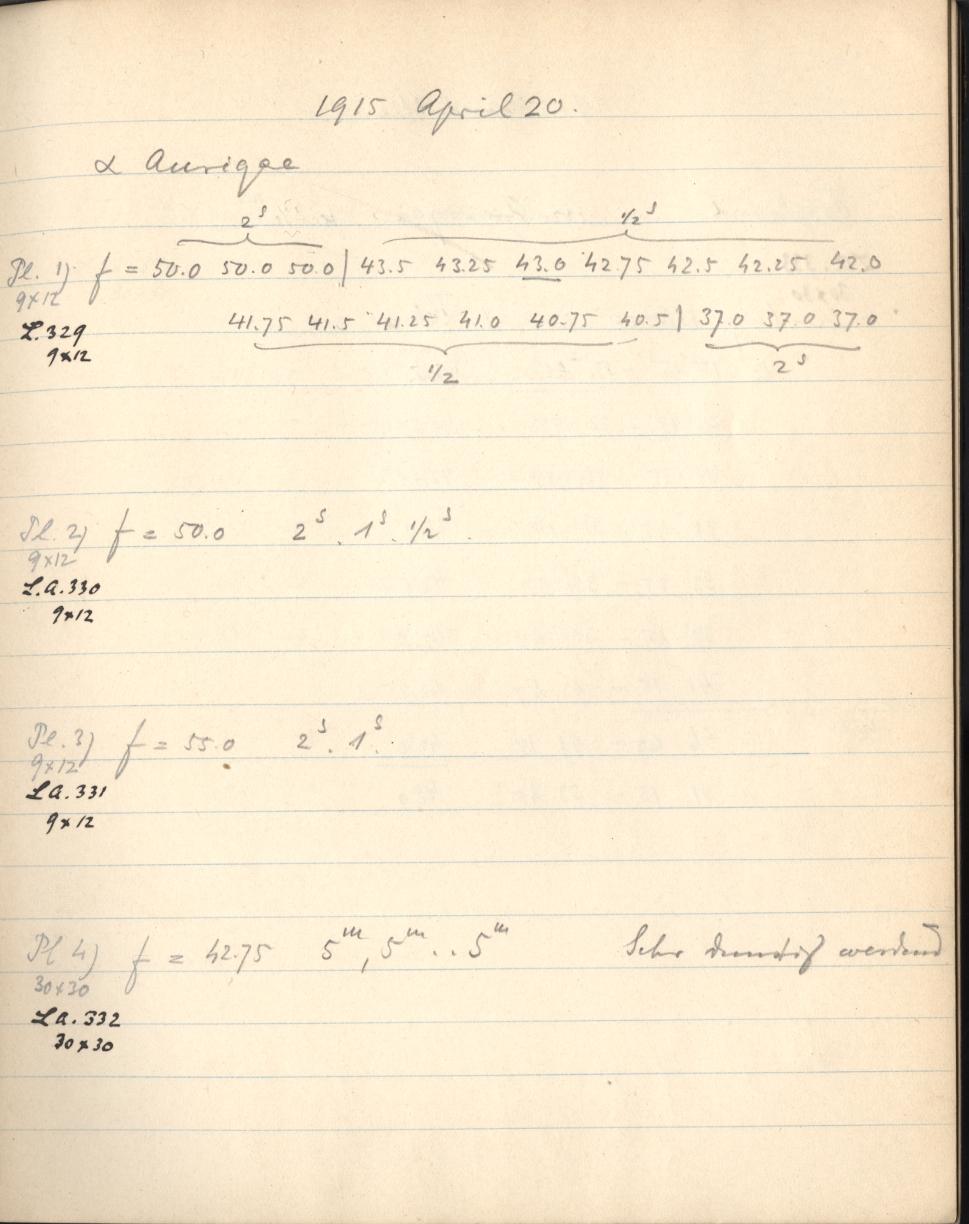 1915 April 20.
α Aurigae
2ˢ ½ˢ
Pl. 1) f = 50.0 50.0 50.0 | 43.5 43.25 43.0 42.75 42.5 42.25 42.0
9x12
41.75 41.5 41.25 41.0 40.75 40.5 | 37.0 37.0 37.0
L.329
9x12
½ 2ˢ
Pl. 2) f = 50.0 2ˢ. 1ˢ. ½ˢ.
9x12
L.a.330
9x12
Pl. 3) f = 55.0 2ˢ. 1ˢ.
9x12
La.331
9x12
Pl 4) f = 42.75 5ᵐ, 5ᵐ .. 5ᵐ Sehr dunstig werdend
30x30
La.332
30x30